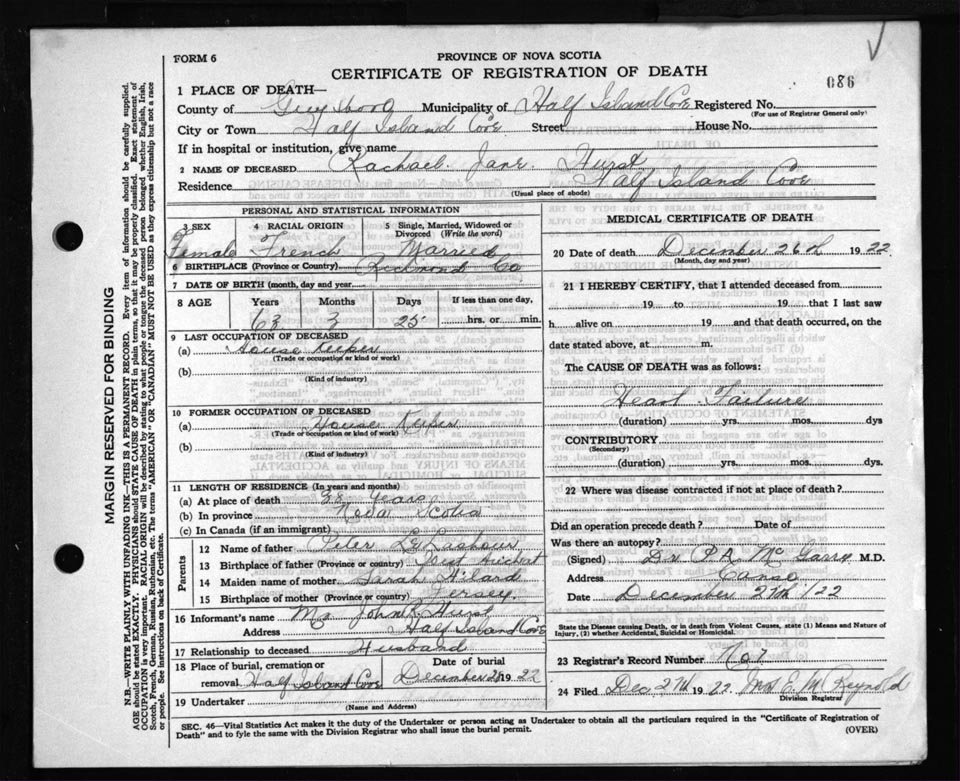 FORM 6
PROVINCE OF NOVA SCOTIA
CERTIFICATE OF REGISTRATION OF DEATH
086
1 PLACE OF DEATH—
County of Guysboro Municipality of Half Island Cove Registered No.
(For use of Registrar General only)
City or Town Half Island Cove Street House No.
If in hospital or institution, give name
2 NAME OF DECEASED Rachael Jane Hurst
Residence Half Island Cove
(Usual place of abode)
PERSONAL AND STATISTICAL INFORMATION
3 SEX 4 RACIAL ORIGIN 5 Single, Married, Widowed or Divorced (Write the word)
Female French Married
6 BIRTHPLACE (Province or Country) Richmond Co
7 DATE OF BIRTH (month, day and year)
8 AGE Years Months Days If less than one day,
63 3 25 hrs. or min.
9 LAST OCCUPATION OF DECEASED
(a) House Keeper
(Trade or occupation or kind of work)
(b)
(Kind of industry)
10 FORMER OCCUPATION OF DECEASED
(a) House Keeper
(Trade or occupation or kind of work)
(b)
(Kind of industry)
11 LENGTH OF RESIDENCE (In years and months)
(a) At place of death Years
(b) In province Nova Scotia
(c) In Canada (if an immigrant)
Parents
12 Name of father Peter
13 Birthplace of father (Province or country)
14 Maiden name of mother Sarah
15 Birthplace of mother (Province or country) Jersey.
16 Informant's name Mr John K Hurst
Address Half Island Cove
17 Relationship to deceased Husband
18 Place of burial, cremation or removal Half Island Cove
Date of burial December 28 1922
19 Undertaker
(Name and Address)
MEDICAL CERTIFICATE OF DEATH
20 Date of death December 26th 1922
(Month, day and year)
21 I HEREBY CERTIFY, that I attended deceased from
19 to 19 that I last saw
h alive on 19 and that death occurred, on the
date stated above, at m.
The CAUSE OF DEATH was as follows:
Heart Failure
(duration) yrs. mos. dys
CONTRIBUTORY
(Secondary)
(duration) yrs. mos. dys.
22 Where was disease contracted if not at place of death?
Did an operation precede death? Date of
Was there an autopsy?
(Signed) Dr P.A. McGarry M.D.
Address Canso
Date December 27th /22
State the Disease causing Death, or in death from Violent Causes, state (1) Means and Nature of
Injury, (2) whether Accidental, Suicidal or Homicidal.
23 Registrar's Record Number No 7
24 Filed Dec 27th 1922. Mrs E. M Reynold
Division Registrar
SEC. 46—Vital Statistics Act makes it the duty of the Undertaker or person acting as Undertaker to obtain all the particulars required in the "Certificate of Registration of
Death" and to fyle the same with the Division Registrar who shall issue the burial permit.
(OVER)
MARGIN RESERVED FOR BINDING
N.B.—WRITE PLAINLY WITH UNFADING INK—THIS IS A PERMANENT RECORD. Every item of information should be carefully supplied.
AGE should be stated EXACTLY. PHYSICIANS should STATE CAUSE OF DEATH in plain terms, so that it may be properly classified. Exact statement of
OCCUPATION is very important. RACIAL ORIGIN will be described by stating to what people or tongue the deceased person belonged whether English, Irish,
Scotch, French, German, Russian, Ruthenian, etc. The terms "AMERICAN" OR "CANADIAN" MUST NOT BE USED as they express citizenship but not a race
or people. See instructions on back of Certificate.